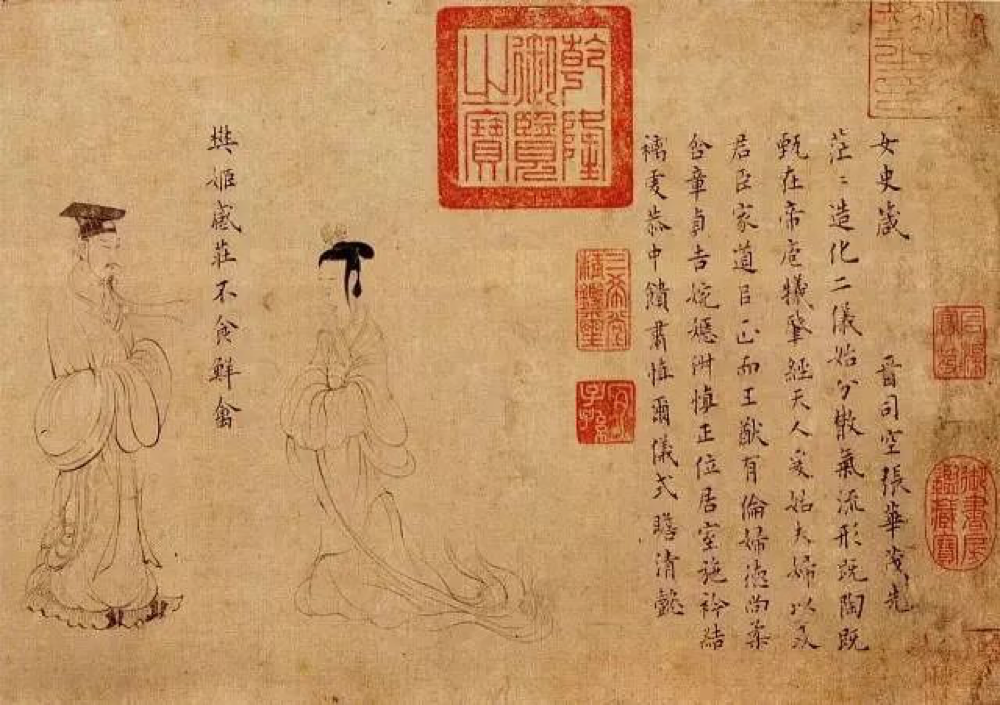 女史箴 晉司空張華茂先
茫〻造化二儀始分散氣流形既陶既
甄在帝庖犧肇經天人爰始夫婦以及
君臣家道㠯正而王猷有倫婦德尚柔
含章貞吉婉嫕淑慎正位居室施衿結
褵虔恭中饋肅慎爾儀式瞻清懿
樊姬感莊不食鮮禽
乾隆御覽之寶
三希堂精鑑璽
宜子孫
御書房鑑藏寶